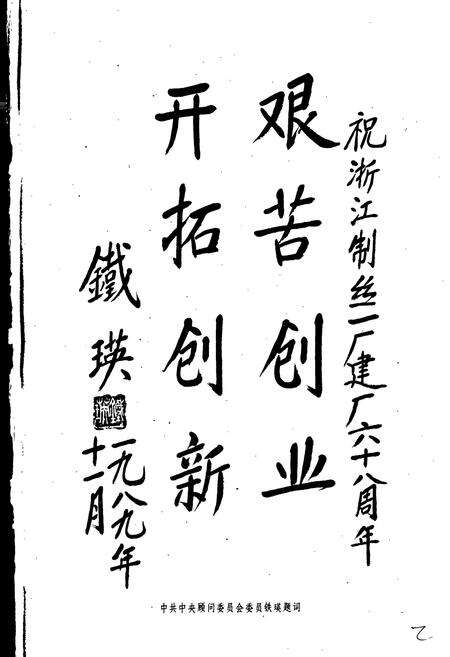 祝浙江制丝一厂建厂六十八周年
艰苦创业
开拓创新
鐵瑛
一九八九年
十一月
中共中央顾问委员会委员铁瑛题词